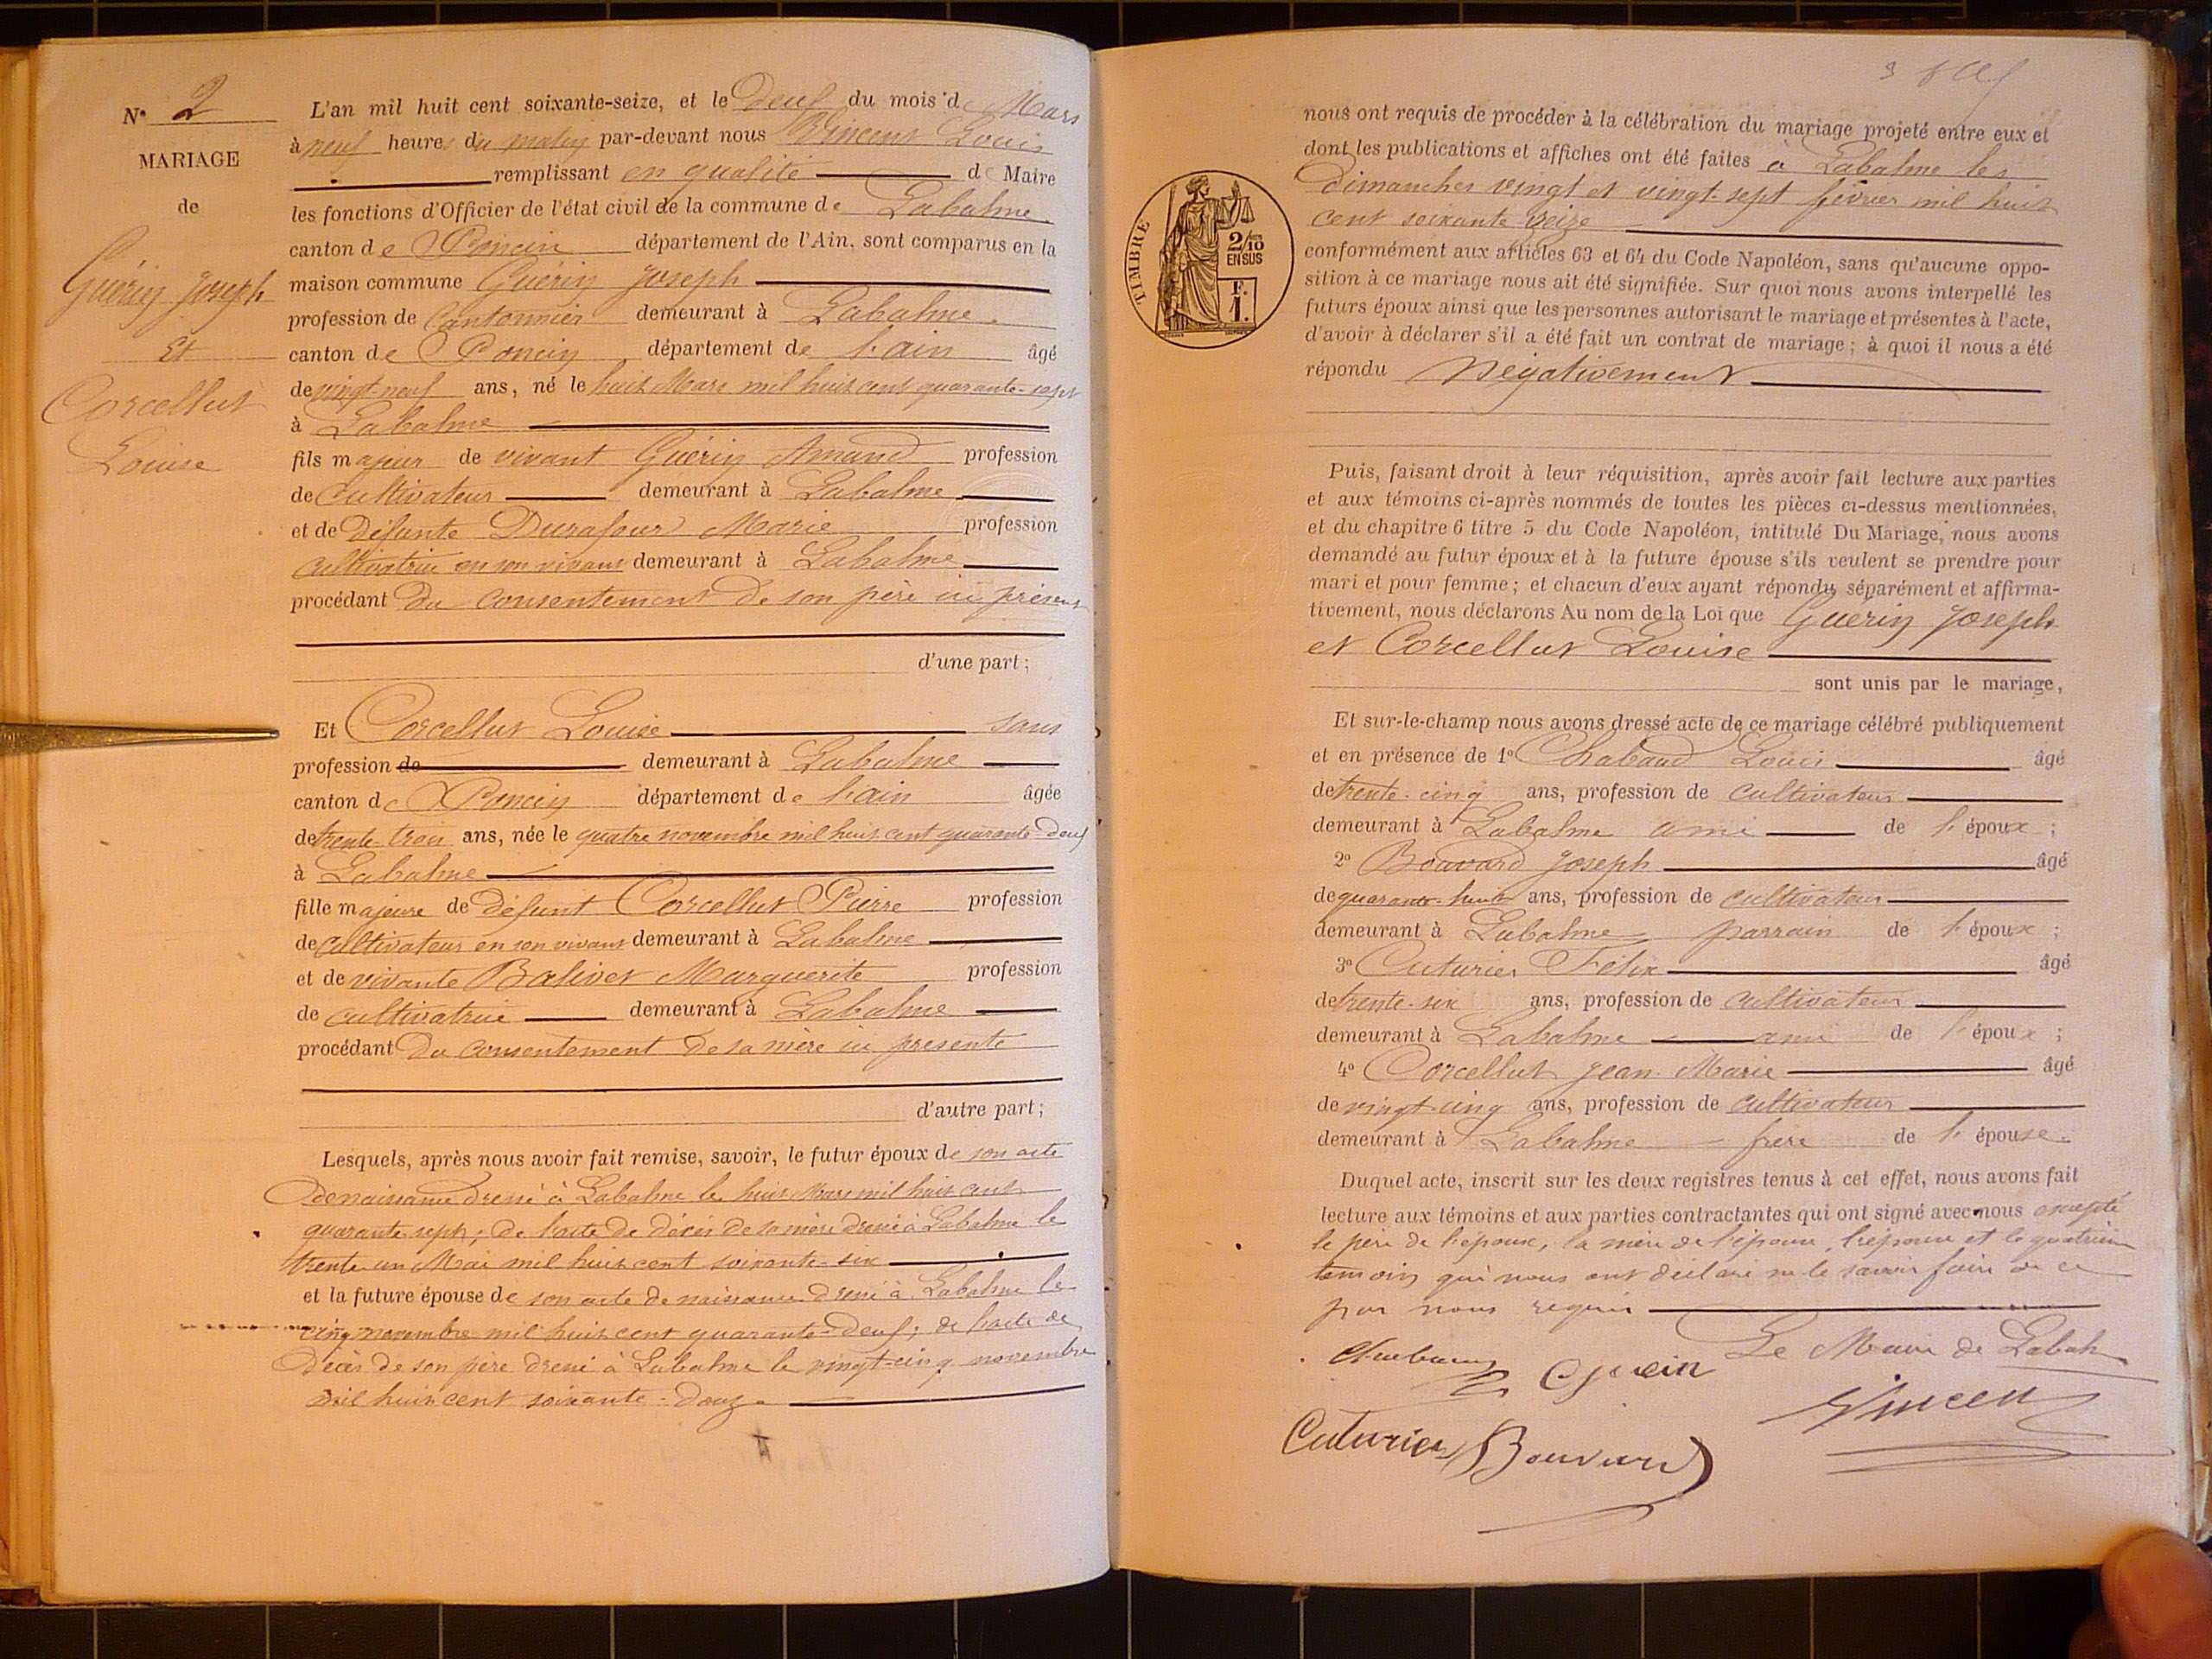 N° 2
MARIAGE
de
Guérin Joseph
Et
Corcellut
Louise
L'an mil huit cent soixante-seize, et le deux du mois de Mars
à neuf heures du matin par-devant nous Vincent Louis
remplissant en qualité de Maire
les fonctions d'Officier de l'état civil de la commune de Labalme
canton de Poncin département de l'Ain, sont comparus en la
maison commune Guérin Joseph
profession de Cantonnier demeurant à Labalme
canton de Poncin département de l'ain âgé
de vingt-neuf ans, né le huit Mars mil huit cent quarante-sept
à Labalme
fils majeur de vivant Guérin Amand profession
de Cultivateur demeurant à Labalme
et de défunte Durafour Marie profession
cultivatrice en son vivant demeurant à Labalme
procédant du consentement de son père ici présent
d'une part;
Et Corcellut Louise sans
profession de demeurant à Labalme
canton de Poncin département de l'ain âgée
de trente trois ans, née le quatre novembre mil huit cent quarante-deux
à Labalme
fille majeure de défunt Corcellut Pierre profession
de cultivateur en son vivant demeurant à Labalme
et de vivante Balivet Marguerite profession
de cultivatrice demeurant à Labalme
procédant du consentement de sa mère ici présente
d'autre part;
Lesquels, après nous avoir fait remise, savoir, le futur époux de son acte
de naissance dressé à Labalme le huit Mars mil huit cent
quarante sept; de l'acte de décès de sa mère dressé à Labalme le
trente un Mai mil huit cent soixante-six
et la future épouse de son acte de naissance dressé à Labalme le
cinq novembre mil huit cent quarante-deux; de l'acte de
décès de son père dressé à Labalme le vingt-cinq novembre
mil huit cent soixante-douze
nous ont requis de procéder à la célébration du mariage projeté entre eux et
dont les publications et affiches ont été faites à Labalme les
dimanches vingt et vingt-sept février mil huit
cent soixante seize
TIMBRE
2/10
EN SUS
F.
1.
conformément aux articles 63 et 64 du Code Napoléon, sans qu'aucune oppo-
sition à ce mariage nous ait été signifiée. Sur quoi nous avons interpellé les
futurs époux ainsi que les personnes autorisant le mariage et présentes à l'acte,
d'avoir à déclarer s'il a été fait un contrat de mariage; à quoi il nous a été
répondu Négativement
Puis, faisant droit à leur réquisition, après avoir fait lecture aux parties
et aux témoins ci-après nommés de toutes les pièces ci-dessus mentionnées,
et du chapitre 6 titre 5 du Code Napoléon, intitulé Du Mariage, nous avons
demandé au futur époux et à la future épouse s'ils veulent se prendre pour
mari et pour femme; et chacun d'eux ayant répondu séparément et affirma-
tivement, nous déclarons Au nom de la Loi que Guérin Joseph
et Corcellut Louise
sont unis par le mariage,
Et sur-le-champ nous avons dressé acte de ce mariage célébré publiquement
et en présence de 1° Chabaud Louis âgé
de trente-cinq ans, profession de cultivateur
demeurant à Labalme ami de l'époux;
2° Bouvard Joseph âgé
de quarante-huit ans, profession de cultivateur
demeurant à Labalme parrain de l'époux;
3° Cuturier Félix âgé
de trente-six ans, profession de cultivateur
demeurant à Labalme ami de l'époux;
4° Corcellut Jean Marie âgé
de vingt-cinq ans, profession de cultivateur
demeurant à Labalme frère de l'épouse.
Duquel acte, inscrit sur les deux registres tenus à cet effet, nous avons fait
lecture aux témoins et aux parties contractantes qui ont signé avec nous excepté
le père de l'époux, la mère de l'épouse, l'épouse et le quatrième
témoin qui nous ont déclaré ne le savoir faire de ce
par nous requis
Le Maire de Labalme
Vincent
Cuturier Bouvard